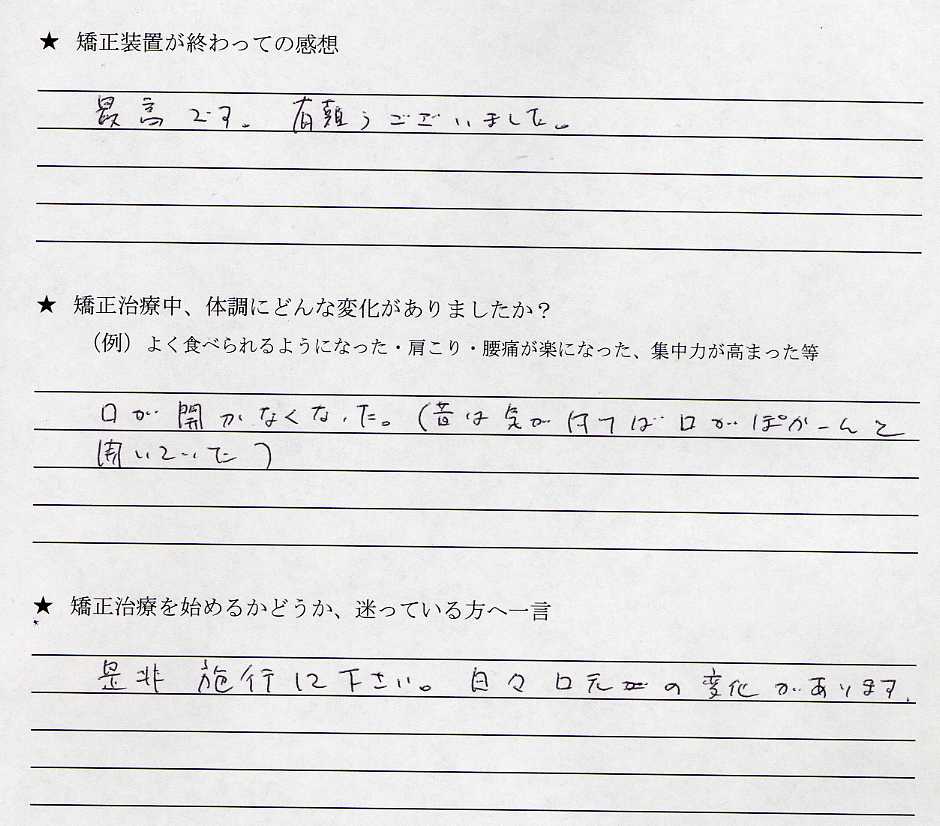 ★ 矯正装置が終わっての感想
最高です。有頼うございました。
★ 矯正治療中、体調にどんな変化がありましたか？
（例）よく食べられるようになった・肩こり・腰痛が楽になった、集中力が高まった等
口が開かなくなった。(昔は気が付てば口がぽかーんと
開いていた)
★ 矯正治療を始めるかどうか、迷っている方へ一言
是非施行して下さい。日々口元の変化があります.